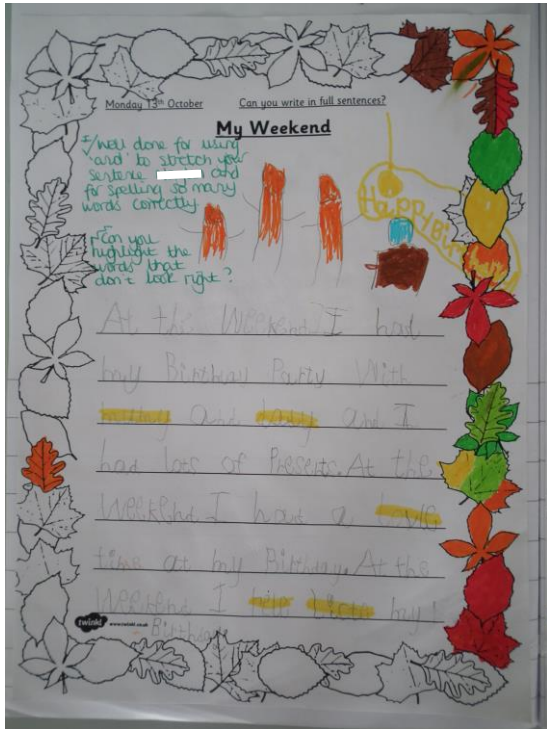 Monday 13th October Can you write in full sentences?
My Weekend
Well done for using
'and' to stretch your
sentence and
for spelling so many
words correctly.
Can you
highlight the
words that
don't look right?
HAPPY Birthday
At the Weekend I had
my Birthday Party With
and and I
had lots of Presents. At the
Weekend I had a love
time at my Birthday. At the
Weekend I my
Birthday
twinkl www.twinkl.co.uk